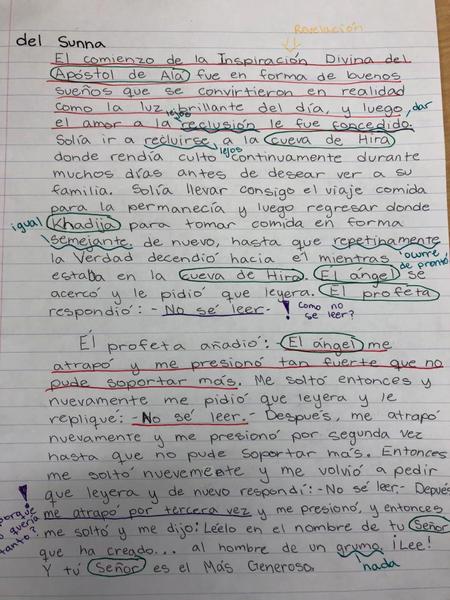 Revelación
del Sunna
El comienzo de la Inspiración Divina del
Apóstol de Alá fue en forma de buenos
sueños que se convirtieron en realidad
como la luz brillante del día, y luego, dar
lejos
el amor a la reclusión le fue concedido.
Solía ir a recluirse a la cueva de Hira
lejos
donde rendía culto continuamente durante
muchos días antes de desear ver a su
familia. Solía llevar consigo el viaje comida
para la permanecía y luego regresar donde
igual Khadija para tomar comida en forma
semejante de nuevo, hasta que repetinamente
la Verdad decendió hacia él mientras ocurre
de pronto
estaba en la cueva de Hira. El ángel se
acercó y le pidió que leyera. El profeta
respondió: - No sé leer - ! como no
se leer?
Él profeta añadió: - El ángel me
atrapó y me presionó tan fuerte que no
pude soportar más. Me soltó entonces y
nuevamente me pidió que leyera y le
repliqué: - No sé leer. - Después, me atrapó
nuevamente y me presionó por segunda vez
hasta que no pude soportar más. Entonces
me soltó nuevemente y me volvió a pedir
que leyera y de nuevo respondí: - No sé leer. - Depués
! porque
me atrapó por tercera vez y me presionó, y entonces
quería
tanto?
me soltó y me dijo: Léelo en el nombre de tu Señor
que ha creado... al hombre de un grumo ¡Lee!
Y tú Señor es el Más Generoso. nada